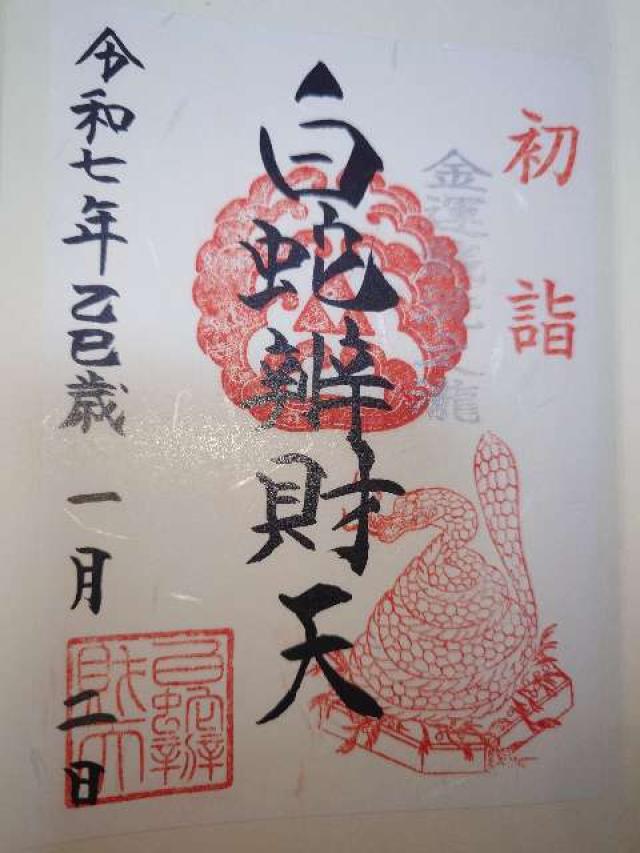 初詣
金運
龍
白蛇辨財天
令和七年乙巳歳 一月 二日
白蛇辨
財天